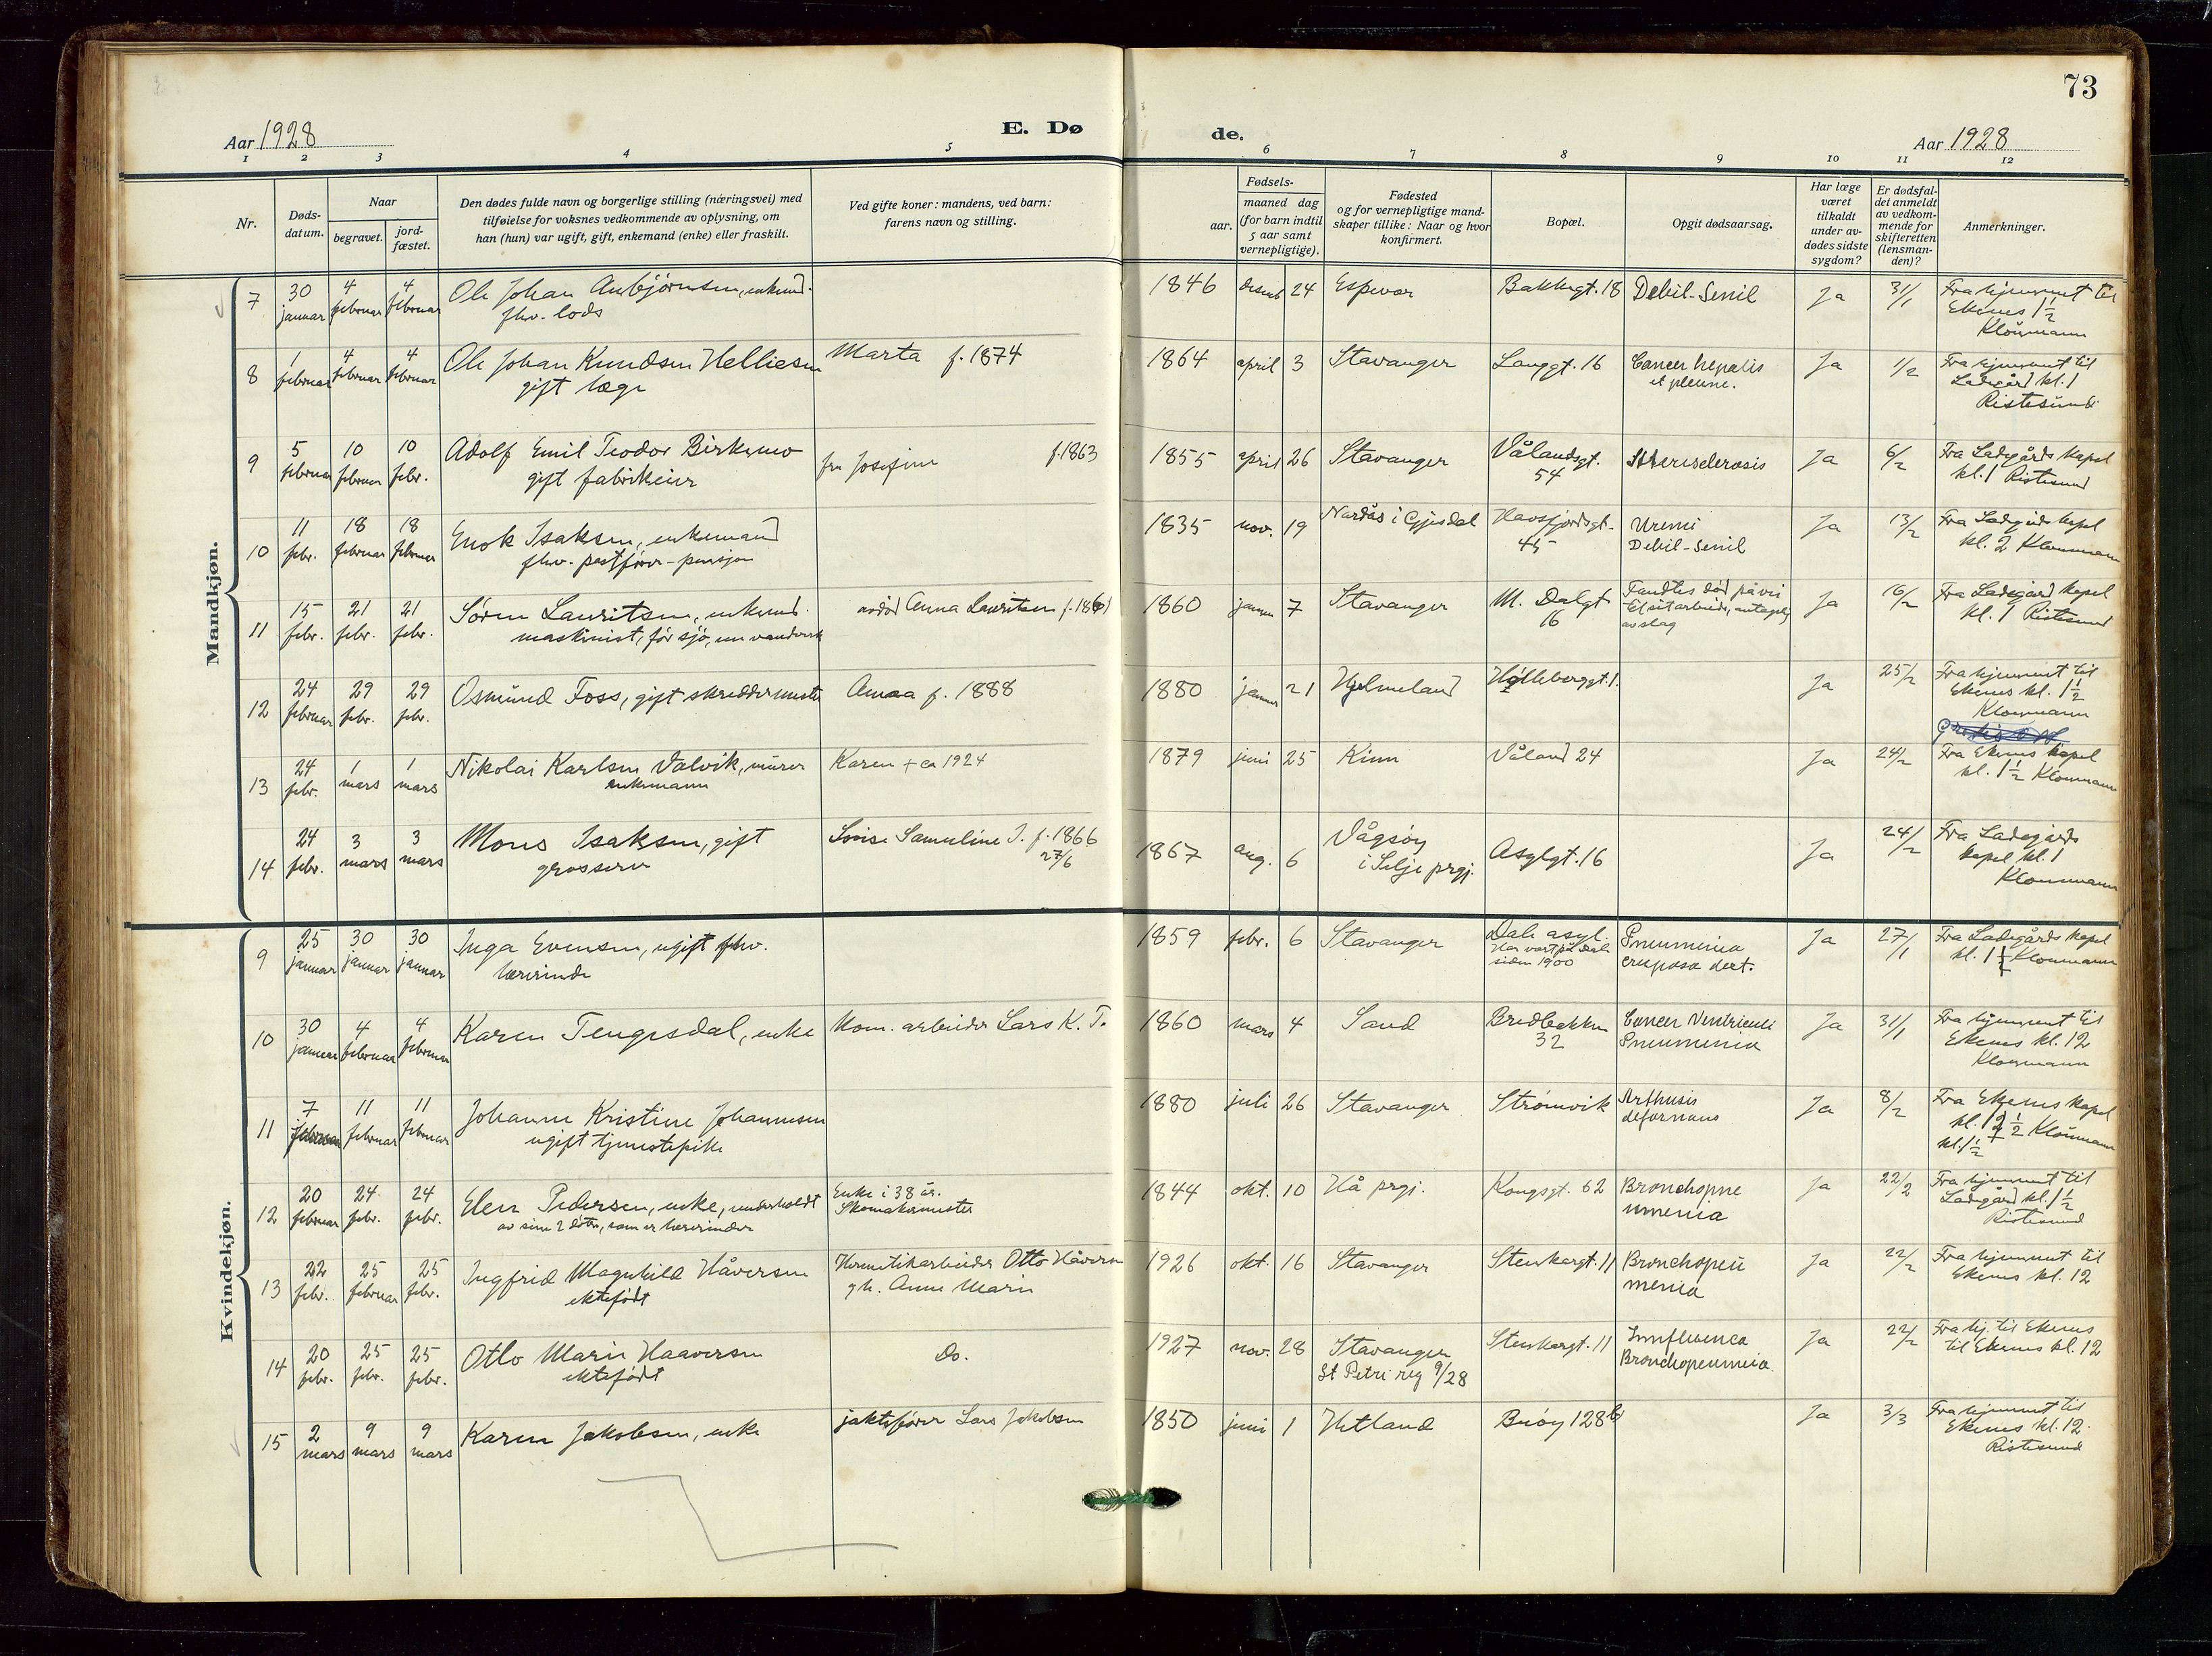 73
Aar 1928
E. Dø
de.
Aar 1928
1 2 3 4 5 6 7 8 9 10 11 12
Nr.
Døds-
datum.
Naar
begravet.
jord-
fæstet.
Den dødes fulde navn og borgerlige stilling (næringsvei) med
tilføielse for voksnes vedkommende av oplysning, om
han (hun) var ugift, gift, enkemand (enke) eller fraskilt.
Ved gifte koner: mandens, ved barn:
farens navn og stilling.
Fødsels-
aar.
maaned dag
(for barn indtil
5 aar samt
vernepligtige).
Fødested
og for vernepligtige mand-
skaper tillike: Naar og hvor
konfirmert.
Bopæl.
Opgit dødsaarsag.
Har læge
været
tilkaldt
under av-
dødes sidste
sygdom?
Er dødsfal-
det anmeldt
av vedkom-
mende for
skifteretten
(lensman-
den)?
Anmerkninger.
Mandkjøn.
7 30 januar 4 februar 4 februar Ole Johan Aubjørnsen, enkemd.
fhv. lods
1846 desemb 24 Espevær Bakkegt. 18 Debil-Senil Ja 31/1 Fra hjemmet til
Ekenes 1 1/2
Kloumann
8 1 februar 4 februar 4 februar Ole Johan Knudsen Helliesen
gift læge
Marta f. 1874
1864 april 3 Stavanger Langgt. 16 Cancer hepatis
et pleurae.
Ja 1/2 Fra hjemmet til
Ladegård kl. 1
Ristesund
9 5 februar 10 februar 10 febr. Adolf Emil Teodor Birkemo
gift fabrikeier
fru Josefine f. 1863
1855 april 26 Stavanger Vålandsgt.
54
Ja 6/2 Fra Ladegårds kapel
kl. 1 Ristesund
10 11 febr. 18 februar 18 februar Enok Isaksen, enkemand
fhv. postfører - pensjon
1835 nov. 19 i Gjesdal Havsfjordsgt.
45
Uremi
Debil-Senil
Ja 13/2 Fra Ladegårds kapel
kl. 2 Kloumann
11 15 febr. 21 febr. 21 febr. Søren Lauritsen, enkemd.
maskinist, før sjø, nu vandverk
Anna Lauritsen
1860 januar 7 Stavanger M. Dalgt
16
Fandtes død på vei
til sit arbeide, antagelig
av slag
Ja 16/2 Fra Ladegård kapel
kl. 1 Ristesund
12 24 februar 29 febr. 29 febr. Osmund Foss, gift skreddermester
Anna f. 1888
1880 januar 21 Hjelmeland Hølleberggt. 1. Ja 25/2 Fra hjemmet til
Ekenes kl. 1 1/2
Kloumann
13 24 febr. 1 mars 1 mars Nikolai Karlsen Valvik, murer
enkemann
Karen + ca 1924
1879 juni 25 Kinn Våland 24 Ja 24/2 Fra Ekenes kapel
kl. 1 1/2 Kloumann
14 24 febr. 3 mars 3 mars Mons Isaksen, gift
grosserer
Lovise Samuline I. f. 1866
27/6
1867 aug. 6 Vågsøy
i Selje prgj.
Asylgt. 16 Ja 24/2 Fra Ladegårds
kapel kl. 1
Kloumann
Kvindekjøn.
9 25 januar 30 januar 30 januar Inga Evensen, ugift fhv.
lærerinde
1859 febr. 6 Stavanger Dale asyl.
Har vært på Dale
siden 1900
Pneumonia
cruposa dext.
Ja 27/1 Fra Ladegårds kapel
kl. 1 1/2 Kloumann
10 30 januar 4 februar 4 februar Karen Tengesdal, enke
Kom. arbeider Lars K. T.
1860 mars 4 Sand Bredbakken
32
Cancer Ventriculi
Pneumonia
Ja 31/1 Fra hjemmet til
Ekenes kl. 12
Kloumann
11 7 februar 11 februar 11 februar Johanne Kristine Johannesen
ugift tjenestepike
1880 juli 26 Stavanger Strømvik Arthusis
deformans
Ja 8/2 Fra Ekenes kapel
kl. 12 1/2 Kloumann
kl. 1 1/2
12 20 februar 24. febr. 24 febr. Elen Pedersen, enke, underholdt
av sine 2 døtre, som er lærerinder
Enke i 38 år.
Skomakermester
1844 okt. 10 Hå prgj. Kongsgt. 62 Bronchopne
umonia
Ja 22/2 Fra hjemmet til
Ladegård kl. 1 1/2
Ristesund
13 22 febr. 25 februar 25 febr. Ingfrid Magnhild Håversen
ektefødt
Hermetikarbeider Otto Håversen
g.h. Anne Marie
1926 okt. 16 Stavanger Stenkargt. 11 Bronchopeu
monia
Ja 22/2 Fra hjemmet til
Ekenes kl. 12
14 20 febr. 25 febr. 25 febr. Otto Marie Haaversen
ektefødt
do.
1927 nov. 28 Stavanger
St Petri reg 9/28
Stenkargt. 11 Innfluenca
Bronchopeumoia
Ja 22/2 Fra hj. til Ekenes
til Ekenes kl. 12
15 2 mars 9 mars 9 mars Karen Jakobsen, enke
jaktefører Lars Jakobsen
1850 juni 1 Hetland Buøy 128b Ja 3/3 Fra hjemmet til
Ekenes kl. 12
Ristesund